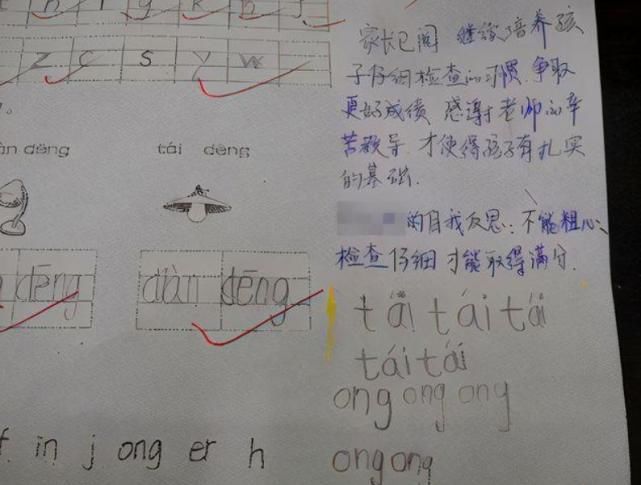 z c s y w
àn dēng
tái dēng
dēng
diàn dēng
in j ong er h
家长已阅 继续培养孩
子仔细检查的习惯 争取
更好成绩 感谢老师的辛
苦教导 才使得孩子有扎实
的基础.
的自我反思:不能粗心、
检查仔细才能取得满分.
tái tái tái
tái tái
ong ong ong
ong ong